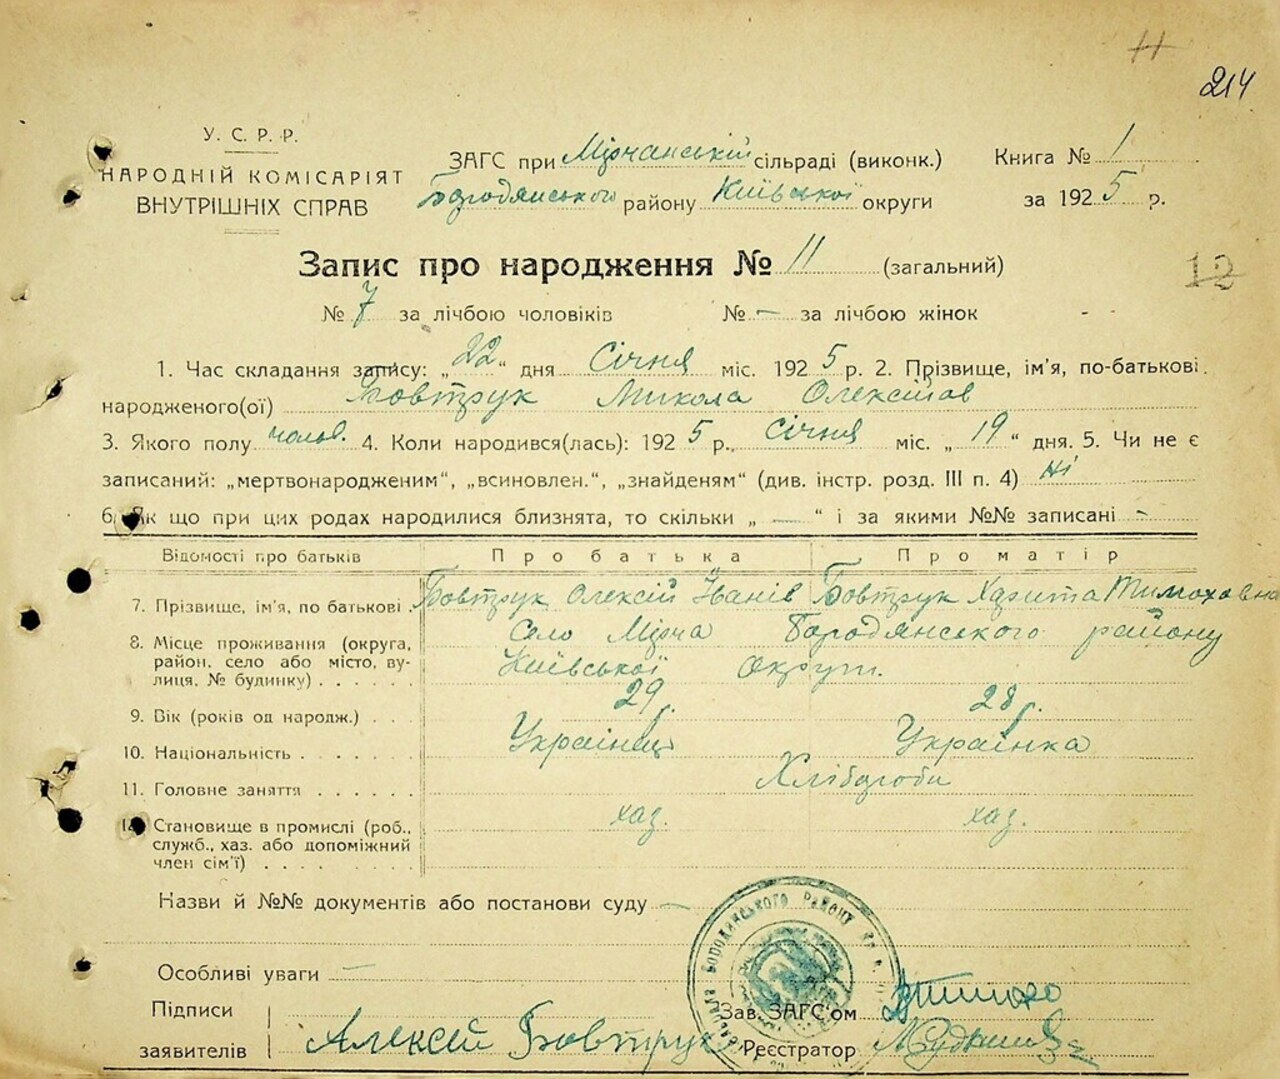 11
214
У. С. Р. Р.
НАРОДНІЙ КОМІСАРІЯТ
ВНУТРІШНІХ СПРАВ
ЗАГС при Мірчанській сільраді (виконк.)
Бородянського району Київської округи
Книга № 1
за 1925 р.
Запис про народження № 11 (загальний)
12
№ 7 за лічбою чоловіків № — за лічбою жінок
1. Час складання запису: „22“ дня Січня міс. 1925 р. 2. Прізвище, ім'я, по-батькові
народженого(ої) Бовтрук Микола Олексійов
3. Якого полу чолов. 4. Коли народився(лась): 1925 р. Січня міс. „19“ дня. 5. Чи не є
записаний: „мертвонародженим“, „всиновлен.“, „знайденям“ (див. інстр. розд. III п. 4) Ні
6. Як що при цих родах народилися близнята, то скільки „ — “ і за якими №№ записані -
Відомості про батьків Про батька Про матір
7. Прізвище, ім'я, по батькові Бовтрук Олексій Іванів Бовтрук Харита Тимоховна
8. Місце проживання (округа, Село Мірча Бородянського району
район, село або місто, ву- Київської округи.
лиця, № будинку) . . . . . .
9. Вік (років од народж.) . . . 29 р. 28 р.
10. Національність . . . . . . Українець Українка
11. Головне заняття . . . . . . Хлібороби
12. Становище в промислі (роб., хаз. хаз.
служб., хаз. або допоміжний
член сім'ї) . . . . . . .
Назви й №№ документів або постанови суду —
Особливі уваги —
Бородянського Району
Підписи
заявителів Алексей Бовтрук
Зав. ЗАГС'ом
Реєстратор